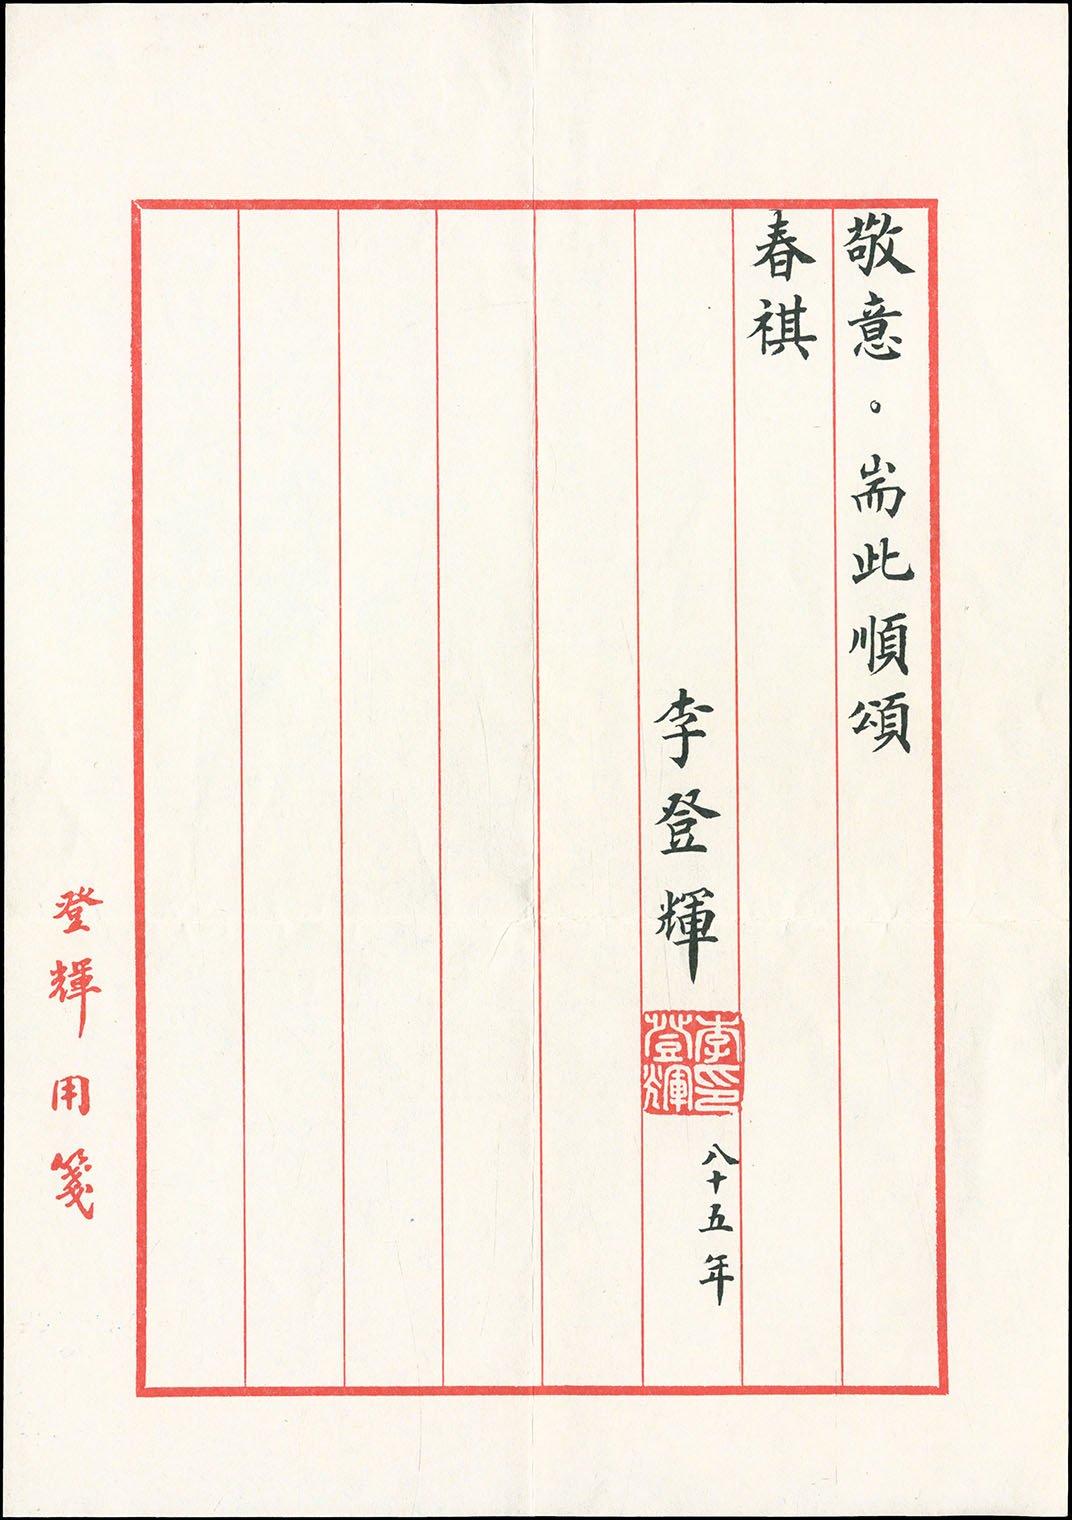 敬意。耑此順頌
春祺
李登輝
李登輝印
八十五年
登輝用箋